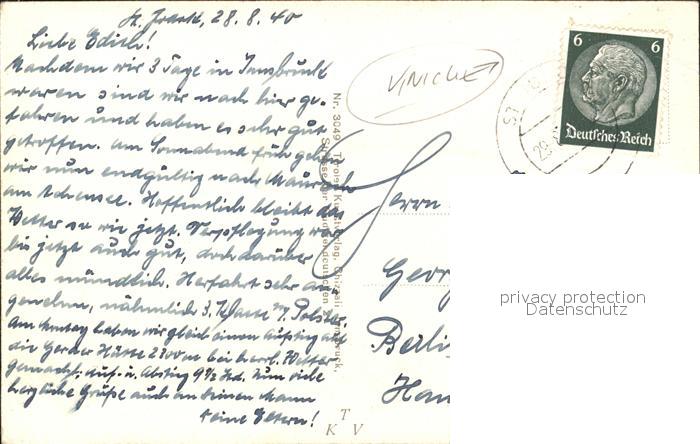 28.8.40
Liebe Edith!
Nachdem wir 3 Tage in Innsbruck
waren sind wir nach hier ge-
fahren und haben es sehr gut
getroffen. Am Sonnabend früh gehen
wir nun endgültig nach Maurach
am Achensee. Hoffentlich bleibt das
Wetter so wie jetzt. Verpflegung war
bis jetzt auch gut, doch darüber
alles mündlich. Herfahrt sehr an-
genehm, nämlich 3. Klasse m. Polster
Am Montag haben wir gleich einen Aufstieg auf
die Gerder Hütte 2300 m bei herrl. Wetter
gemacht; Auf- u. Abstieg 9½ Std. Nun viele
herzliche Grüße auch an Deinen Mann
Deine Eltern!
Nr. 3049 Tiroler Kunstverlag, Chizzali
T
K V
6 6
Deutsches Reich
ST
29
Herrn
Georg
Berlin
privacy protection
Datenschutz